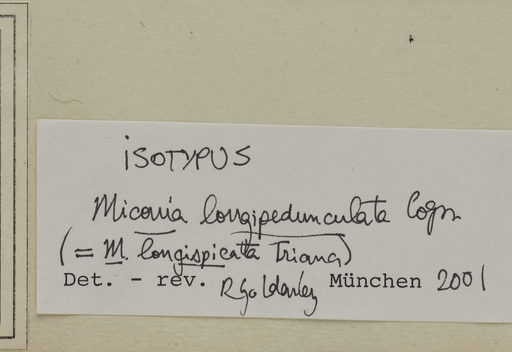 ISOTYPUS
Miconia longipedunculata Cogn
(= M. longispicata Triana)
Det. - rev. R Goldenberg München 2001